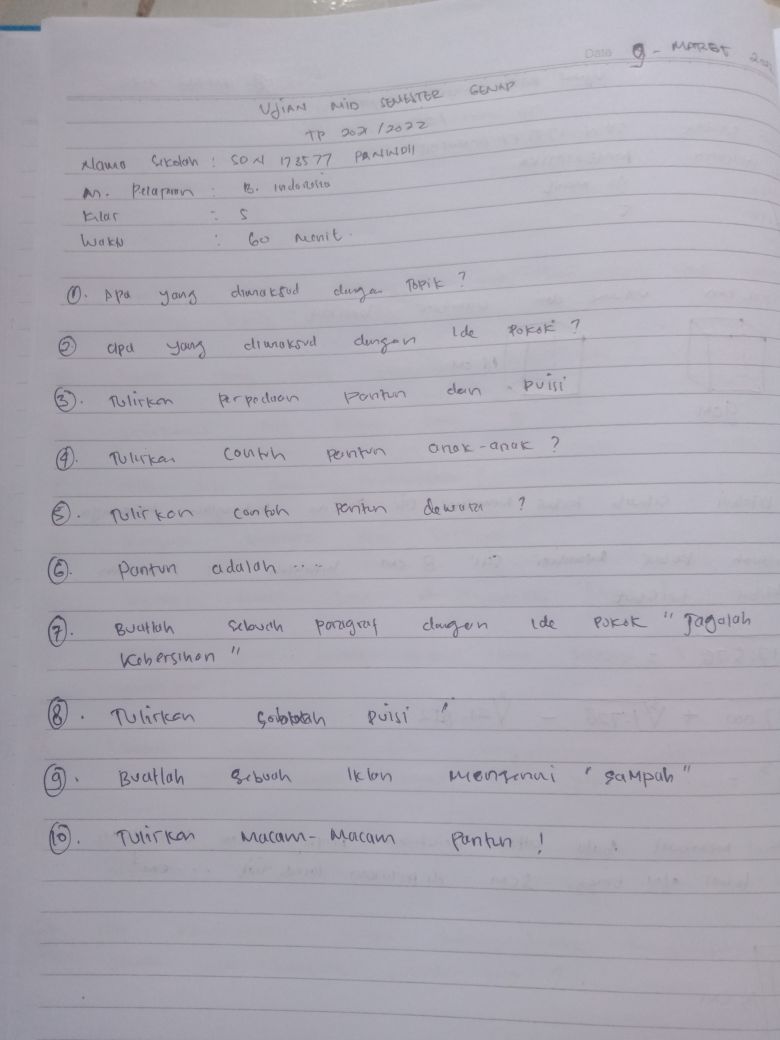 Date 9 - MARET
UJIAN MID SEMESTER GENAP
TP 2021 / 2022
Nama Sekolah : SDN 173577 PANINDII
M. Pelajaran : B. Indonesia
Kelas : 5
Waktu : 60 Menit.
①. Apa yang dimaksud dengan Topik ?
② apa yang dimaksud dengan Ide Pokok ?
③. Tuliskan perpedaan Pantun dan puisi
④. Tuliskan Contoh pantun anak-anak ?
⑤. Tuliskan contoh pantun dewasa ?
⑥. Pantun adalah ....
⑦. Buatlah sebuah paragraf dengan Ide pokok " Jagalah
Kebersihan "
⑧. Tuliskan puisi !
⑨. Buatlah sebuah Iklan mengenai " Sampah "
⑩. Tuliskan Macam-Macam Pantun !